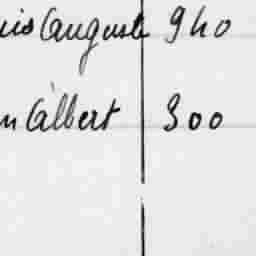 uis Auguste 940
n Albert 300